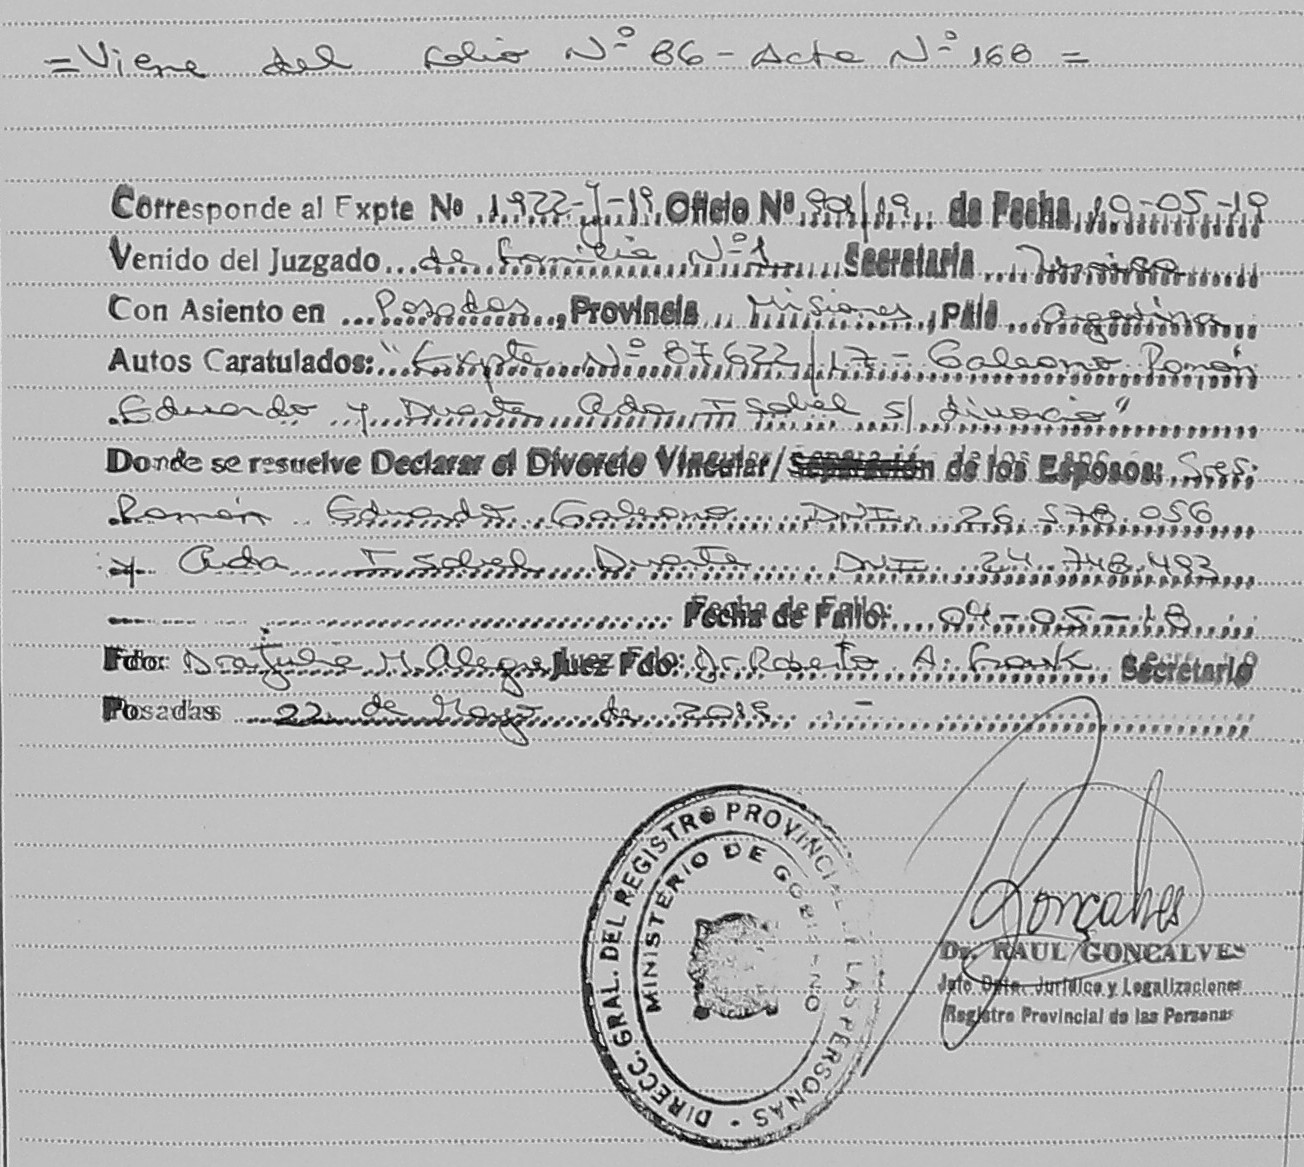 = Viene del folio Nº 86 - Acta Nº 168 =
Corresponde al Expte Nº 1922-J-19 Oficio Nº 801/19 de Fecha 10-05-19
Venido del Juzgado de Familia Nº 1 Secretaria
Con Asiento en Posadas, Provincia Misiones, País Argentina
Autos Caratulados: "Expte Nº 87622/17 - Galeano Román
Eduardo y Duarte Ada Isabel s/ divorcio"
Donde se resuelve Declarar el Divorcio Vincular/Separación de los Esposos: Sres:
Román Eduardo Galeano DNI. 26.578.056
y Ada Isabel Duarte DNI 24.748.493
Fecha de Fallo: 04-05-18
Fdo: Dra Julia H. Alegre Juez Fdo: Dr. Roberto A. Frank Secretario
Posadas 22 de Mayo de 2019 . -
DIRECC. GRAL. DEL REGISTRO PROVINCIAL DE LAS PERSONAS
MINISTERIO DE GOBIERNO
Gonçalves
Dr. RAUL GONCALVES
Jefe Dpto. Jurídico y Legalizaciones
Registro Provincial de las Personas